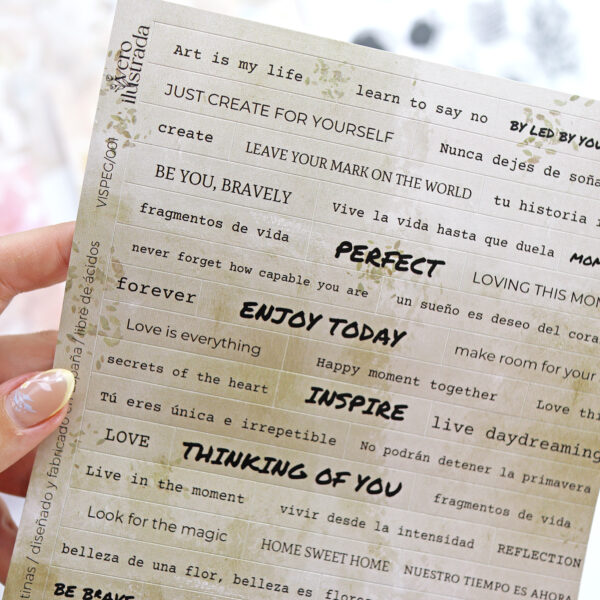 vivero
ilustrada
VISPEG/001
diseñado y fabricado en / libre de ácidos
Art is my life
learn to say no
BY LED BY YOU
JUST CREATE FOR YOURSELF
Nunca dejes de
create
LEAVE YOUR MARK ON THE WORLD
tu historia
BE YOU, BRAVELY
Vive la vida hasta que duela
fragmentos de vida
PERFECT
LOVING THIS
never forget how capable you are
un sueño es deseo del
forever
ENJOY TODAY
make room for your
Love is everything
Happy moment together
Love
secrets of the heart
INSPIRE
live daydreaming
Tú eres única e irrepetible
No podrán detener la primavera
LOVE
THINKING OF YOU
fragmentos de vida
Live in the moment
vivir desde la intensidad
REFLECTION
Look for the magic
HOME SWEET HOME
NUESTRO TIEMPO ES AHORA
belleza de una flor, belleza es
BE BRAVE